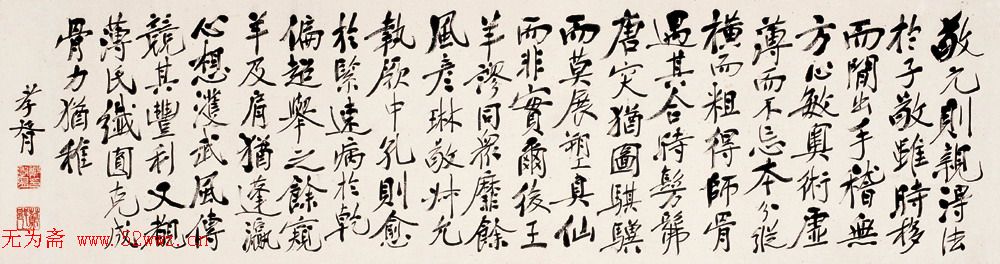 敬元則親得法
於子敬雖時移
而閒出手稽無
方心敏奧術虛
薄而不忘本分縱
橫而粗得師骨
遇其合時髣髴
唐突猶圖騏驥
而莫展塑真仙
而非實爾後王
羊謬同眾靡餘
風彥琳敬叔允
執厥中孔則愈
於緊速病於乾
偏超舉之餘窺
羊及肩猶蓬瀛
心想灌武風儔
競其豐利又覩
薄氏纖圓克成
骨力猶稚
孝胥
无为斋